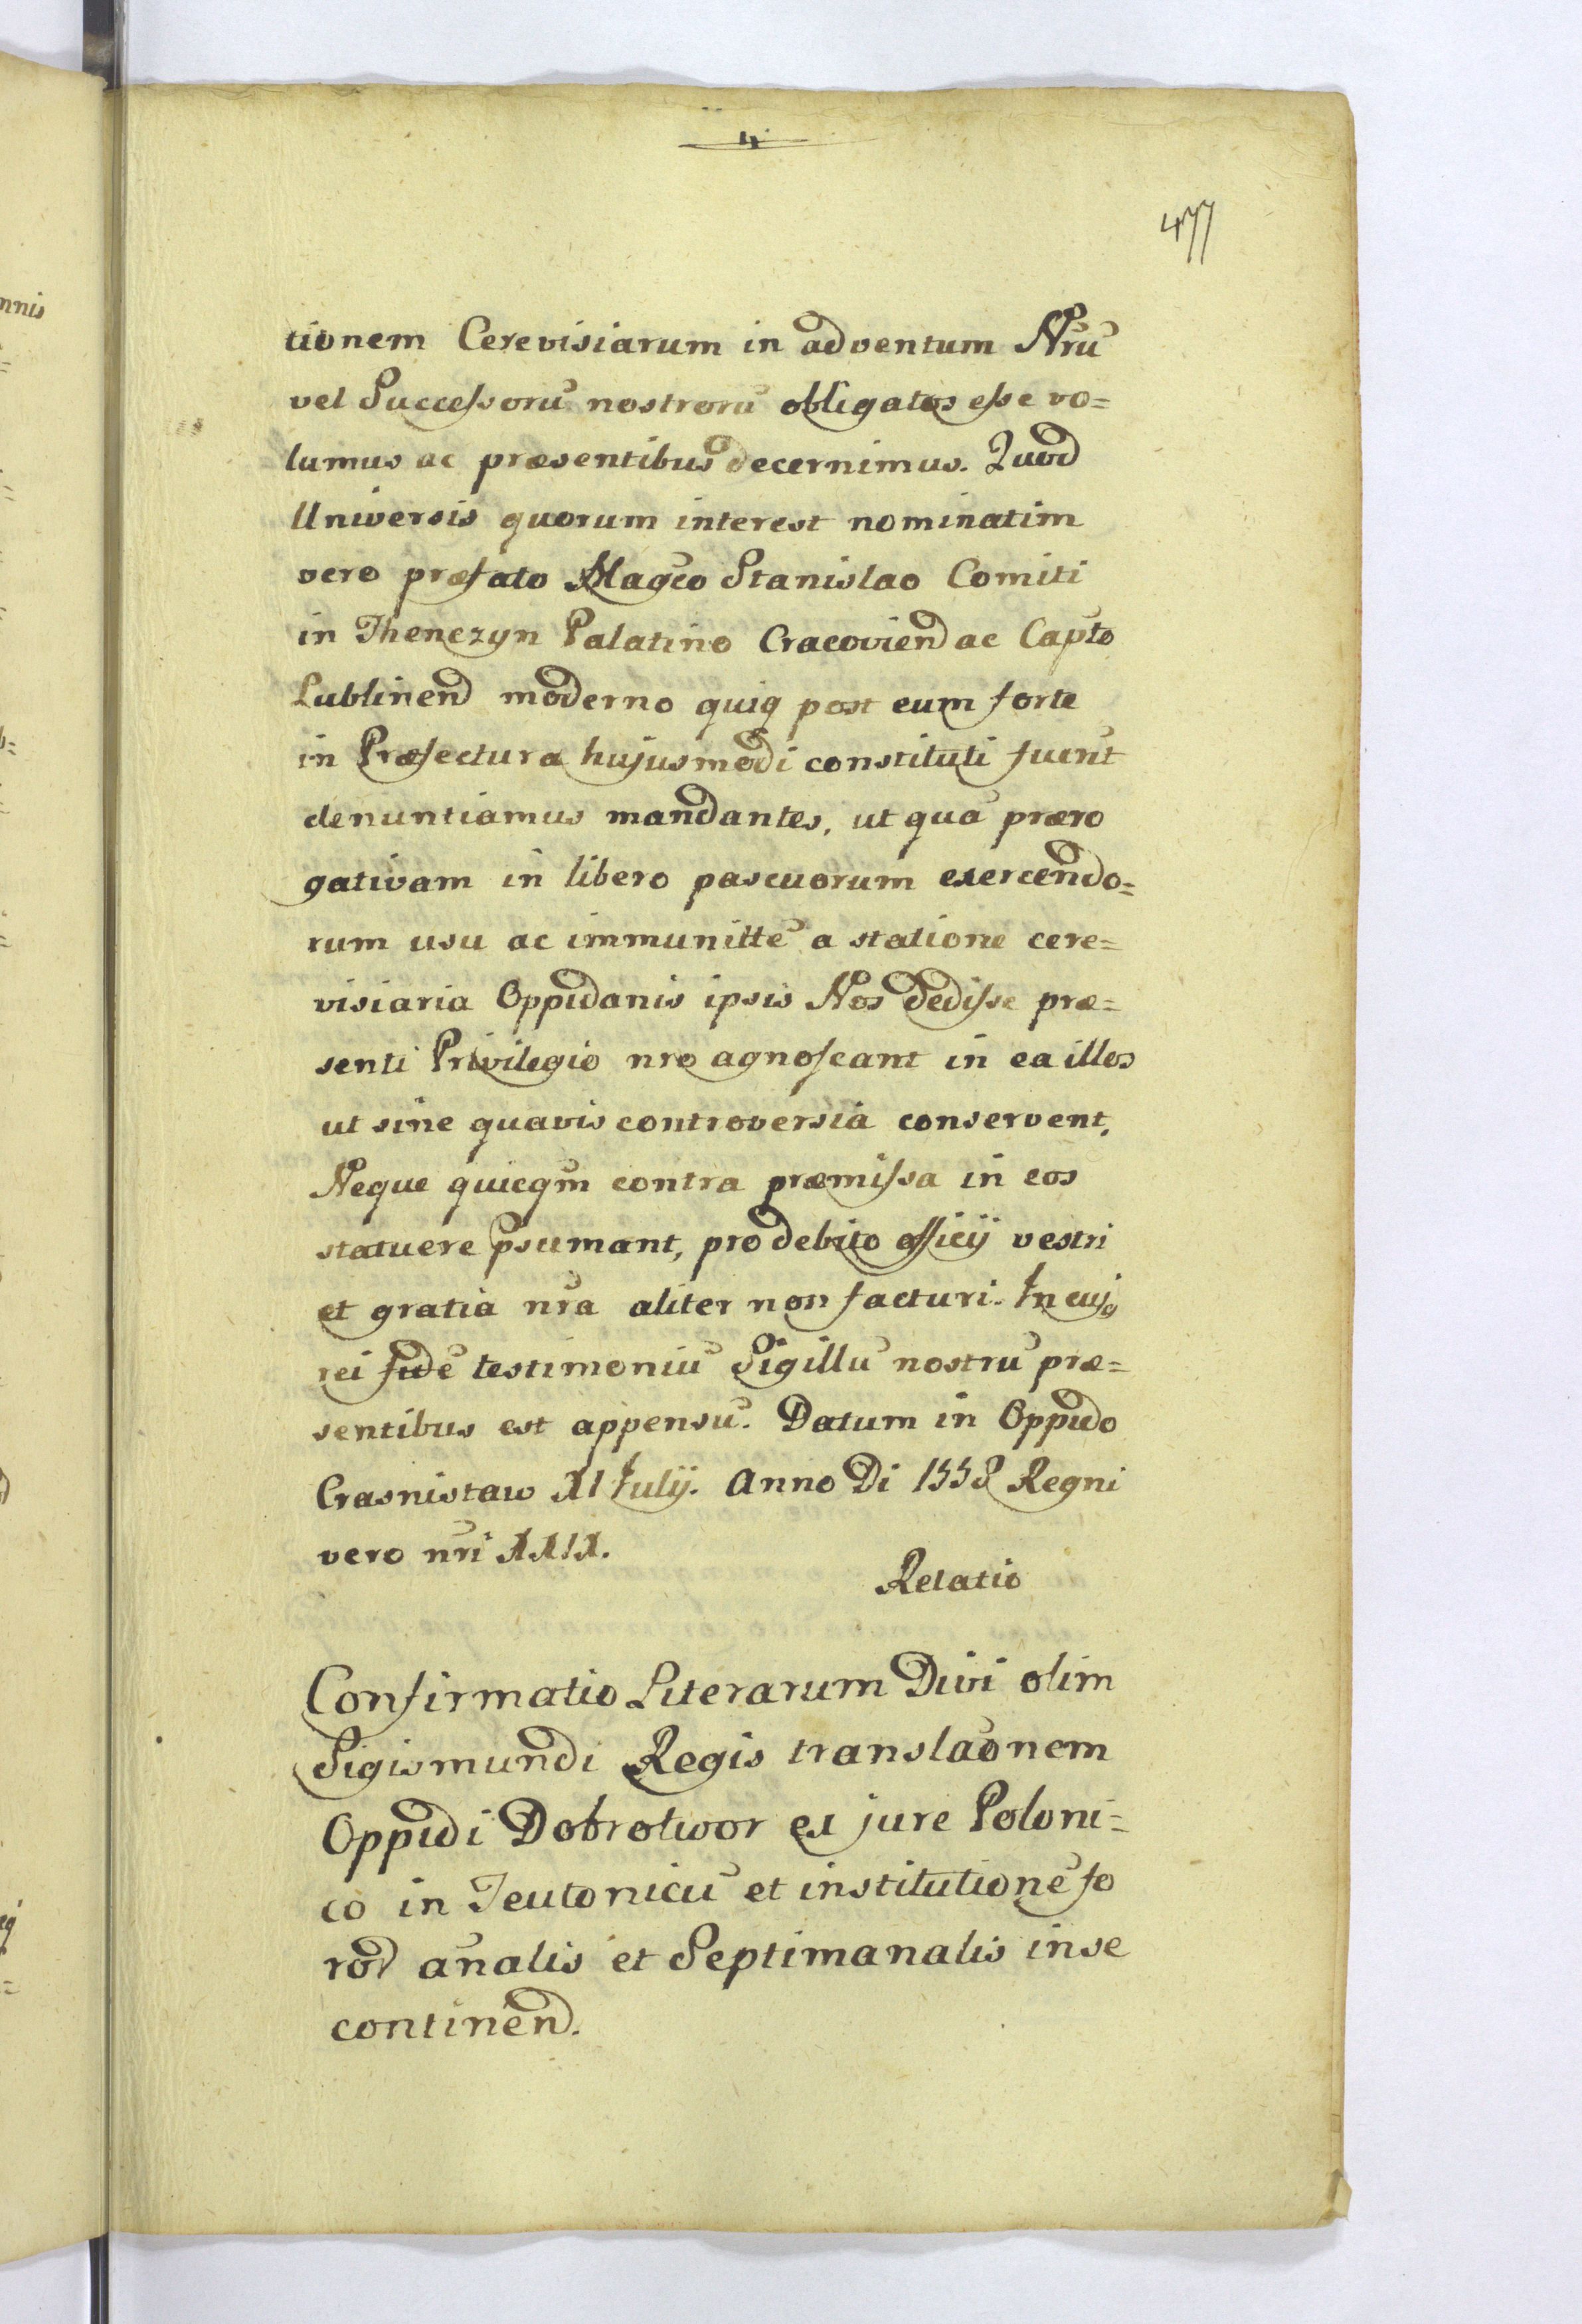 477
tionem Cerevisiarum in adventum Nrũ
vel Successorũ nostrorũ obligatos esse vo=
lumus ac præsentibus decernimus. Quod
Universis quorum interest nominatim
vero præfato Magco Stanislao Comiti
in Thenczyn Palatino Cracoviend ac Capto
Lublinend moderno quiq post eum forte
in Præfectura hujusmodi constituti fuerũt
denuntiamus mandantes, ut quã præro
gativam in libero pascuorum exercendo=
rum usu ac immunittẽ a statione cere=
visiaria Oppidanis ipsis Nos dedisse præ=
senti Privilegio nro agnoscant in ea illos
ut sine quavis controversia conservent,
Neque quicqm contra præmissa in eos
statuere psumant, pro debito officij vestri
et gratia nra aliter non facturi. In cujq
rei fidẽ testimoniũ Sigillũ nostrũ præ=
sentibus est appensũ. Datum in Oppido
Crasnistaw XI Julij. Anno Di 1558 Regni
vero nri XXIX.
Relatio
Confirmatio Literarum Divi olim
Sigismundi Regis translaõnem
Oppidi Dobrotwor ex jure Poloni=
co in Teutonicũ et institutionẽ fo
rod añalis et Septimanalis in se
continend.